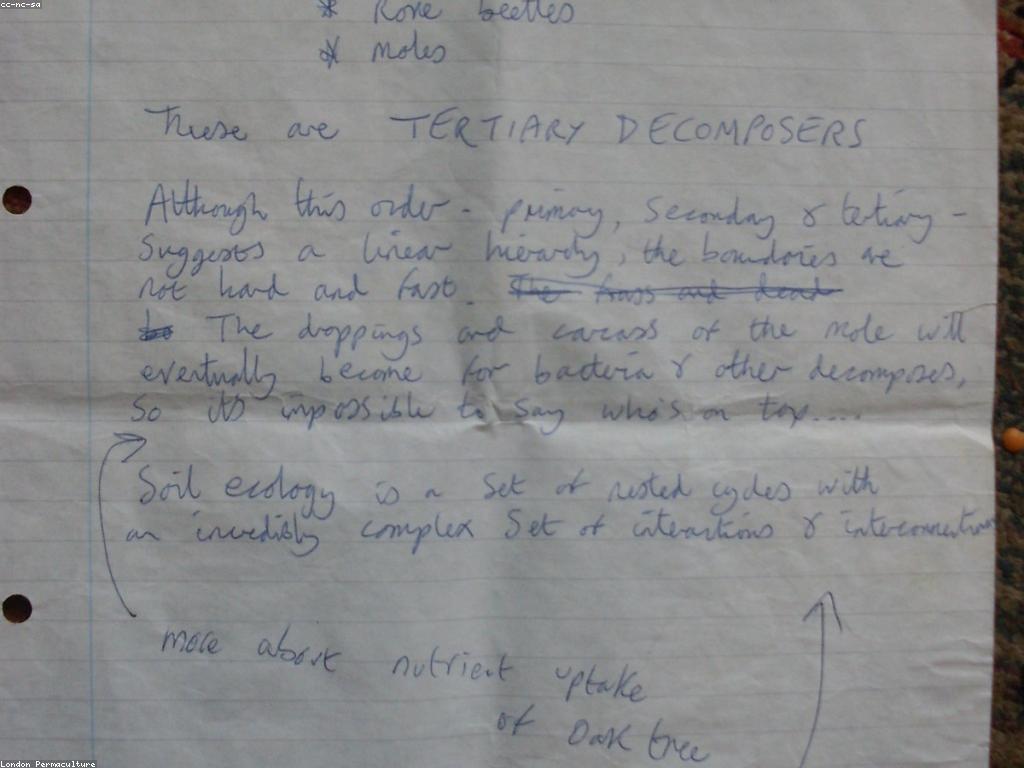 cc-nc-sa
* Rove beetles
* Moles
These are TERTIARY DECOMPOSERS
Although this order - primary, secondary & tertiary -
suggests a linear hierarchy, the boundaries are
not hard and fast. The frass and dead
The droppings and carcass of the mole will
eventually become for bacteria & other decomposes,
so its impossible to say who's on top....
Soil ecology is a set of nested cycles with
an incredibly complex set of interactions & interconnections
more about nutrient uptake
of Oak tree
London Permaculture